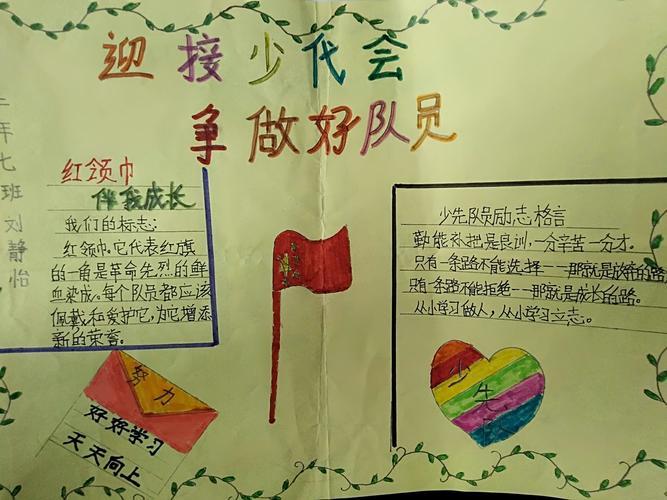 迎接少代会
争做好队员
二年七班刘静怡
红领巾
伴我成长
我们的标志:
红领巾。它代表红旗
的一角是革命先烈的鲜
血染成。每个队员都应该
佩戴和爱护它,为它增添
新的荣誉。
少先队员励志格言
勤能补把是良训,一分辛苦一分才。
只有一条路不能选择——那就是放弃的路
只有一条路不能拒绝——那就是成长的路。
从小学习做人,从小学习立志。
努力
好好学习
天天向上
少先